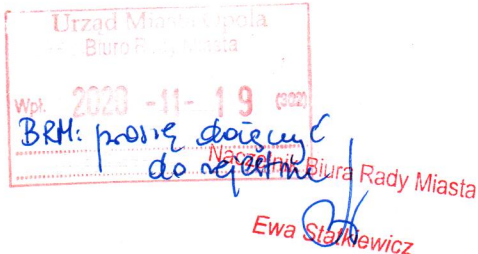 Urząd Miasta Opola
Biuro Rady Miasta
Wpł. 2020 -11- 19 (302)
BRM: proszę dołączyć
do rejestru
Naczelnik Biura Rady Miasta
Ewa Statkiewicz